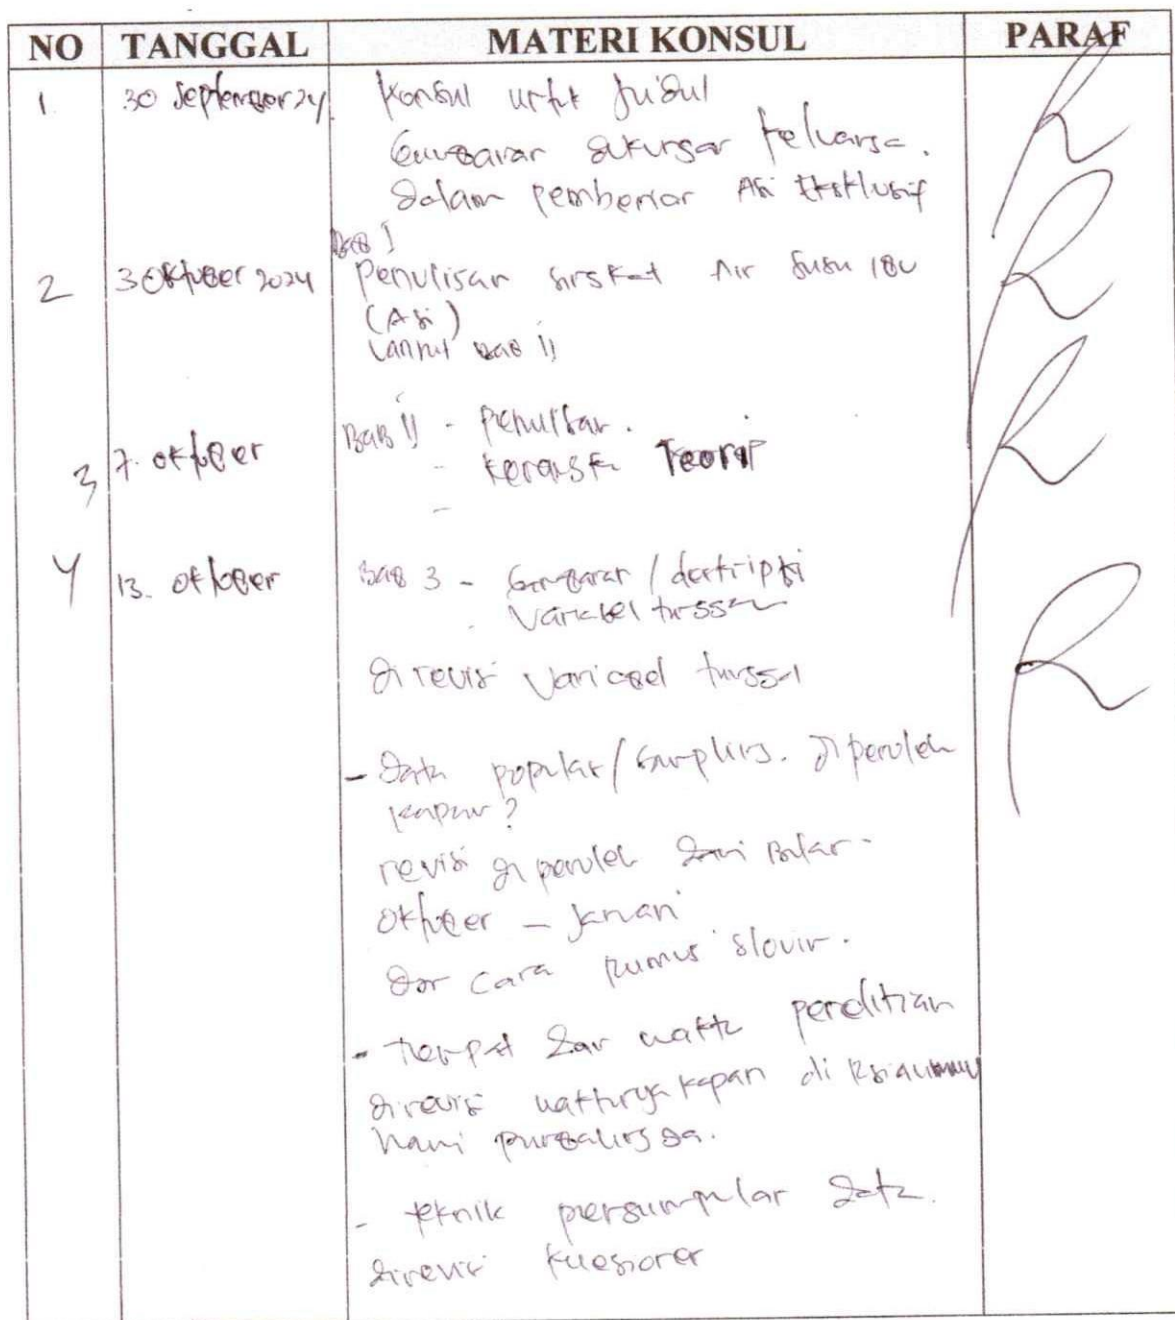 NO TANGGAL MATERI KONSUL PARAF
1. 30 September 24 Konsul untuk Judul
Gambaran dukungan keluarga.
dalam pemberian Asi Eksklusif
Bab I
2 3 Oktober 2024 Penulisan singkat Air Susu Ibu
(Asi)
Lanjut Bab II
3 7. Oktober BAB II - Penulisan.
- Kerangka Teori
-
4 13. Oktober Bab 3 - Gambaran / deskripsi
Variabel tunggal
di revisi Variabel tunggal
- Data populasi / sampling. diperoleh
kapan?
revisi di peroleh dari Bulan -
Oktober - Januari
dan cara rumus slovin.
- Tempat dan waktu penelitian
direvisi waktunya kapan di
purbalingga.
- teknik pengumpulan data.
direvisi kuesioner